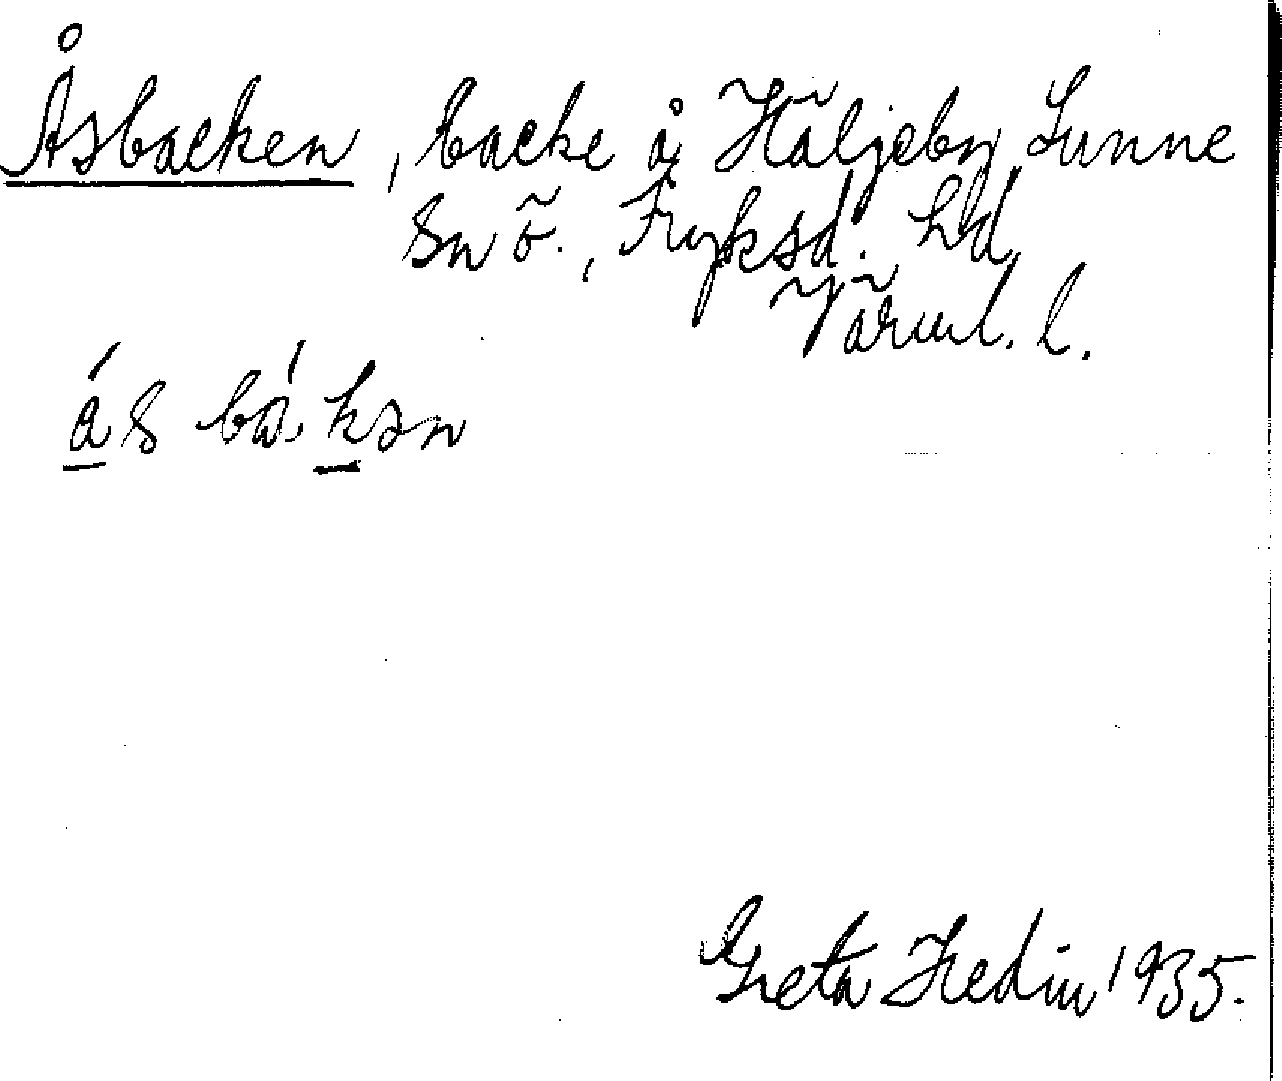 Åsbacken, backe å Häljeby, Sunne
Sn ö., Fryksd. hd,
Värml. l.
ás bá kən
Greta Hedin 1935.